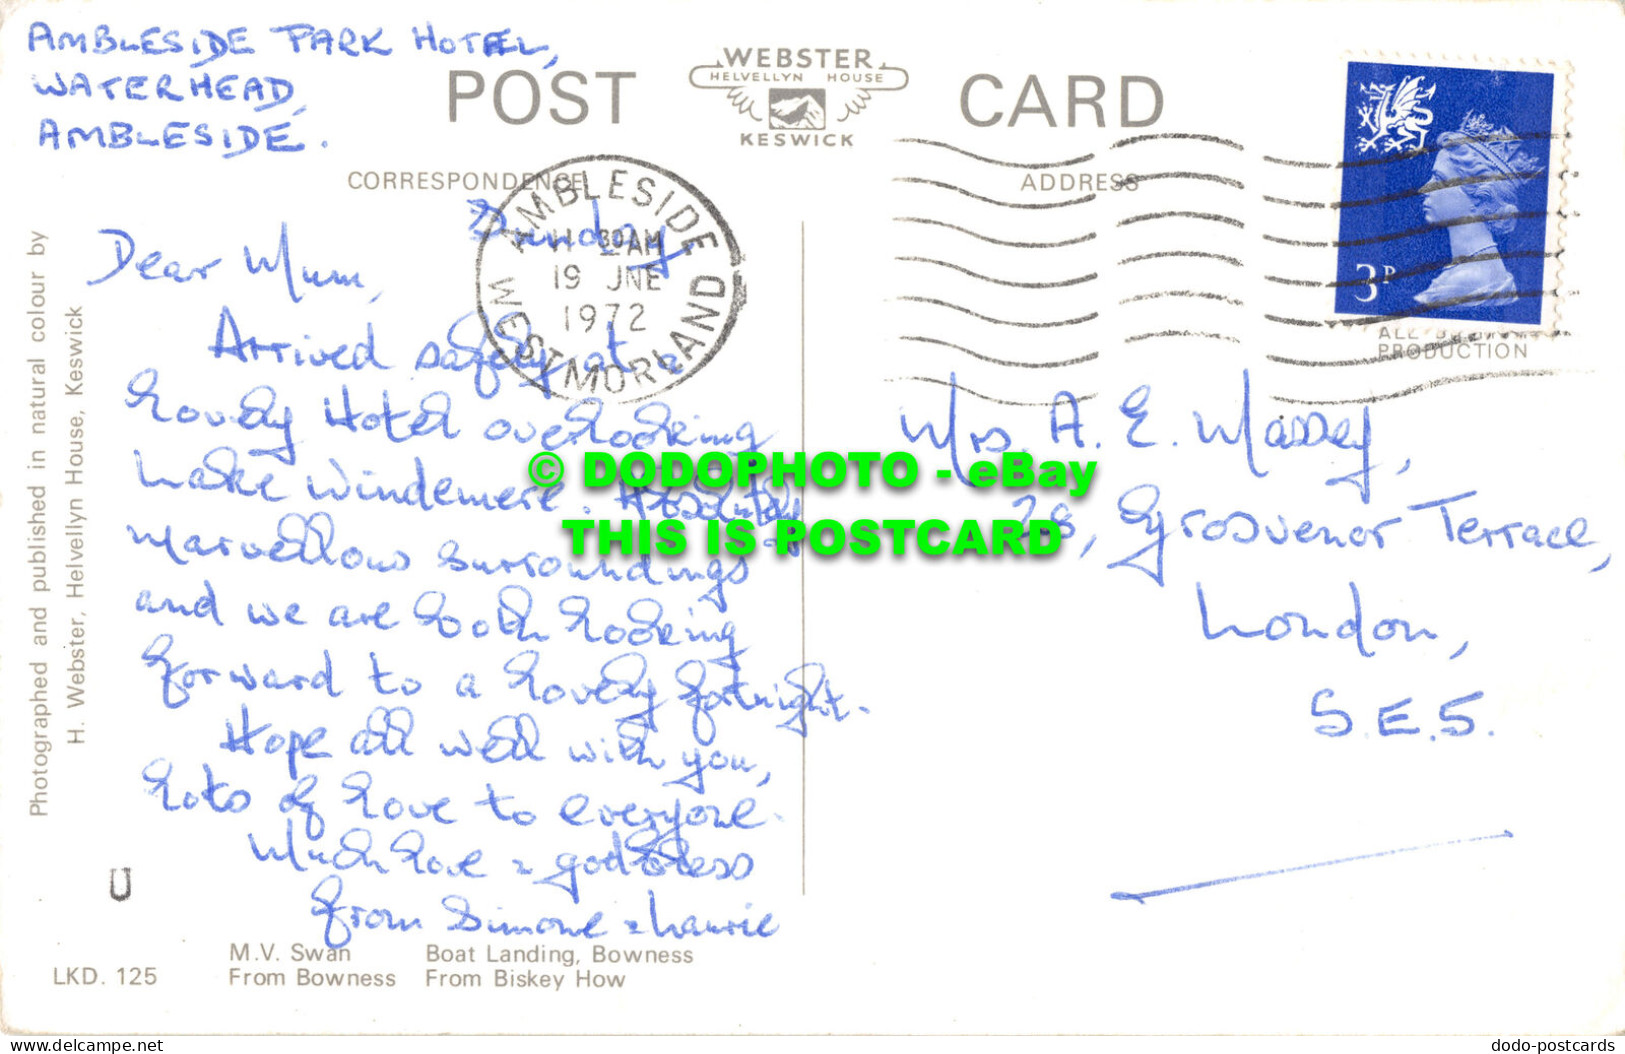 AMBLESIDE PARK HOTEL,
WATERHEAD,
AMBLESIDE.
POST CARD
WEBSTER
HELVELLYN HOUSE
KESWICK
CORRESPONDENCE
ADDRESS
AMBLESIDE
11 30 AM
19 JNE
1972
WESTMORLAND
3P
ALL BRITISH
PRODUCTION
Sunday
Dear Mum,
Arrived safely at a
lovely Hotel overlooking
Lake Windemere. Absolutely
marvellous surroundings
and we are both looking
forward to a lovely fortnight.
Hope all well with you,
Lots of love to everyone.
Much love & god bless
from Simone & Laurie
Mrs. A. E. Massey,
28, Grosvenor Terrace,
London,
S.E.5.
© DODOPHOTO - eBay
THIS IS POSTCARD
Photographed and published in natural colour by
H. Webster, Helvellyn House, Keswick
U
LKD. 125
M.V. Swan
From Bowness
Boat Landing, Bowness
From Biskey How
delcampe.net
dodo-postcards